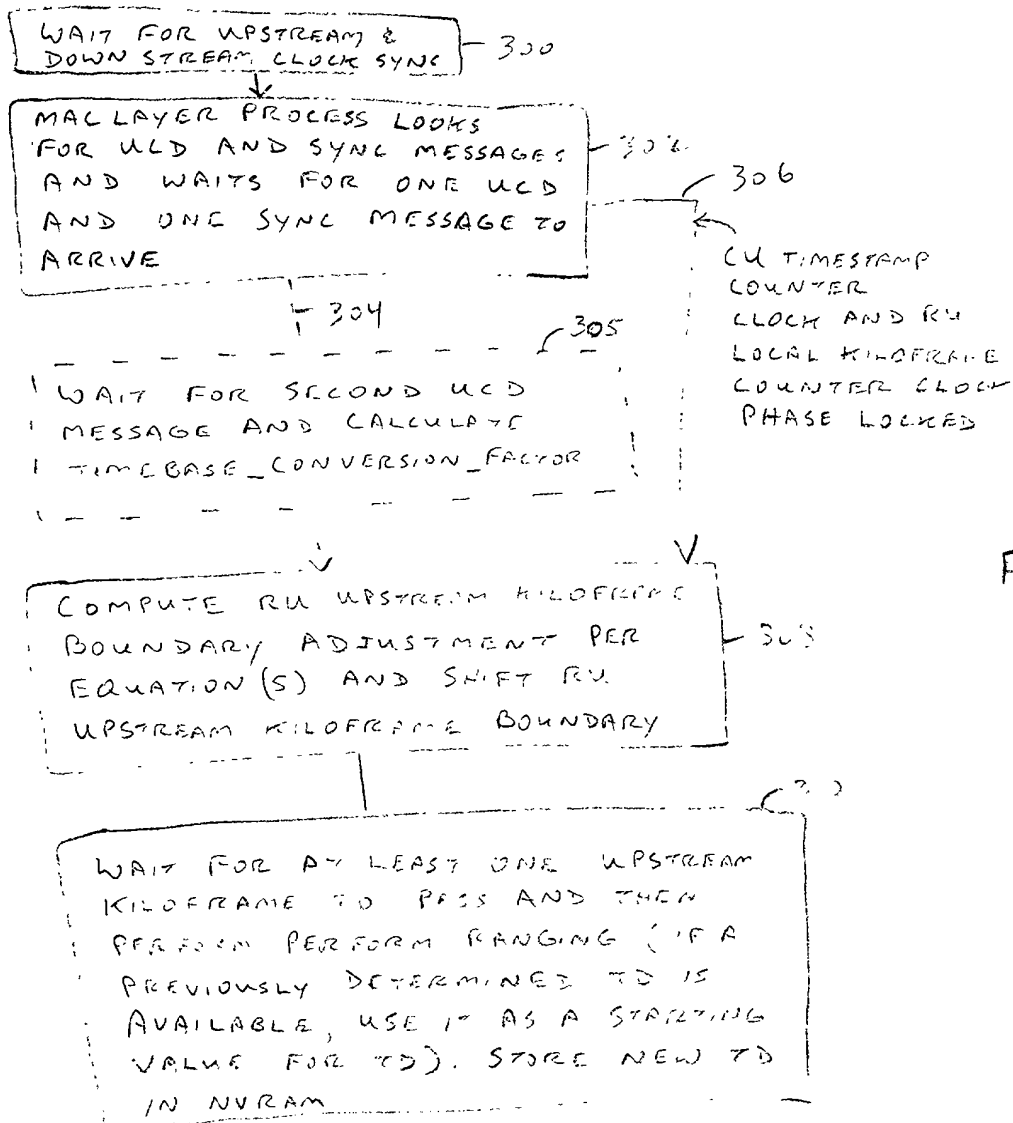 WAIT FOR UPSTREAM &
DOWN STREAM CLOCK SYNC
300
MAC LAYER PROCESS LOOKS
FOR UCD AND SYNC MESSAGES
AND WAITS FOR ONE UCD
AND ONE SYNC MESSAGE TO
ARRIVE
302
306
CU TIMESTAMP
COUNTER
CLOCK AND RU
LOCAL KILOFRAME
COUNTER CLOCK
PHASE LOCKED
304
305
WAIT FOR SECOND UCD
MESSAGE AND CALCULATE
TIMEBASE_CONVERSION_FACTOR
F
COMPUTE RU UPSTREAM KILOFRAME
BOUNDARY ADJUSTMENT PER
EQUATION (5) AND SHIFT RU
UPSTREAM KILOFRAME BOUNDARY
WAIT FOR AT LEAST ONE UPSTREAM
KILOFRAME TO PASS AND THEN
PERFORM PERFORM RANGING (IF A
PREVIOUSLY DETERMINED TD IS
AVAILABLE, USE IT AS A STARTING
VALUE FOR TD). STORE NEW TD
IN NVRAM